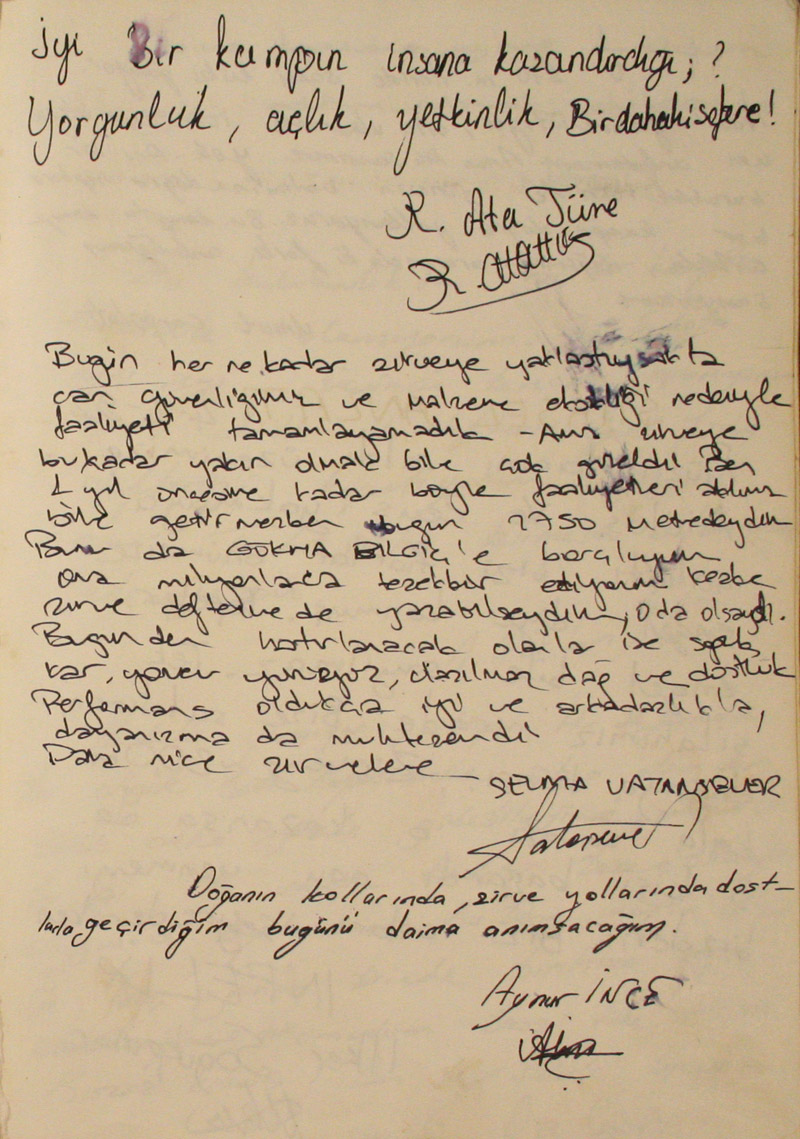 İyi Bir kampın insana kazandırdığı; ?
Yorgunluk, açlık, yetkinlik, Birdahaki sefere!
R. Ata Türe
Bugün her ne kadar zirveye yaklaştıysak ta
can güvenliğimiz ve malzeme eksikliği nedeniyle
faaliyeti tamamlayamadık - Ama zirveye
bu kadar yakın olmak bile çok güzeldi Ben
1 yıl öncesine kadar böyle faaliyetleri aklıma
bile getirmezken bugün 2750 metredeydim
Bunu da GÖKMA BİLGİÇ'e borçluyum
Ona milyonlarca teşekkür ediyorum keşke
zirve defterine de yazabilseydim, O da olsaydı.
Bugünden hatırlanacak olanlar ise soğuk
kar, yoğun yürüyüş, dağ ve dostluk
Performans oldukça iyi ve arkadaşlıkla,
dayanışma da muhteşemdi
Daha nice zirvelere
SELMA VATANSEVER
Doğanın kollarında, zirve yollarında dost-
larla geçirdiğim bugünü daima anımsacağım.
Aynur İNCE